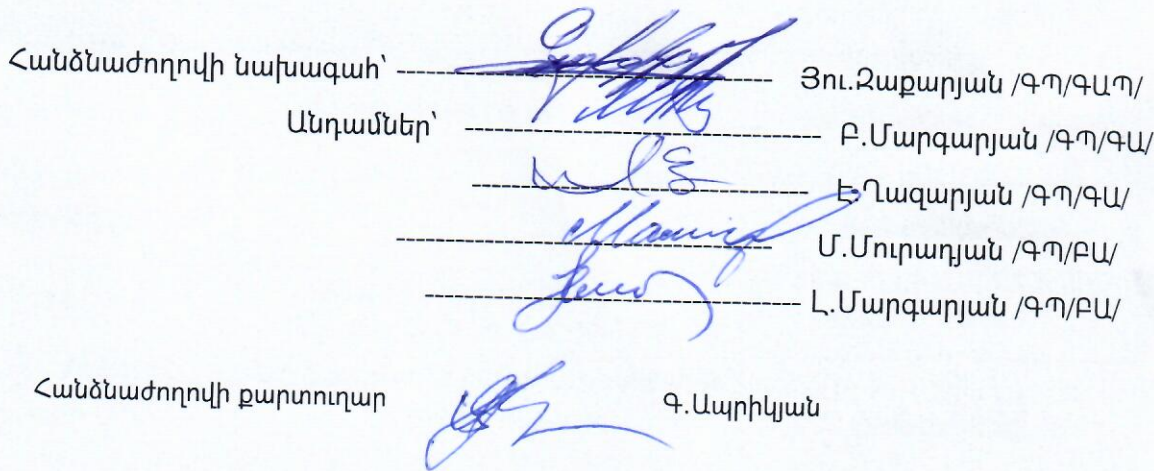 Հանձնաժողովի նախագահ՝ ---------------------------------- Յու.Զաքարյան /ԳՊ/ԳԱՊ/
Անդամներ՝ ---------------------------------- Բ.Մարգարյան /ԳՊ/ԳԱ/
---------------------------------- Է.Ղազարյան /ԳՊ/ԳԱ/
---------------------------------- Մ.Մուրադյան /ԳՊ/ԲԱ/
---------------------------------- Լ.Մարգարյան /ԳՊ/ԲԱ/
Հանձնաժողովի քարտուղար Գ.Ապրիկյան